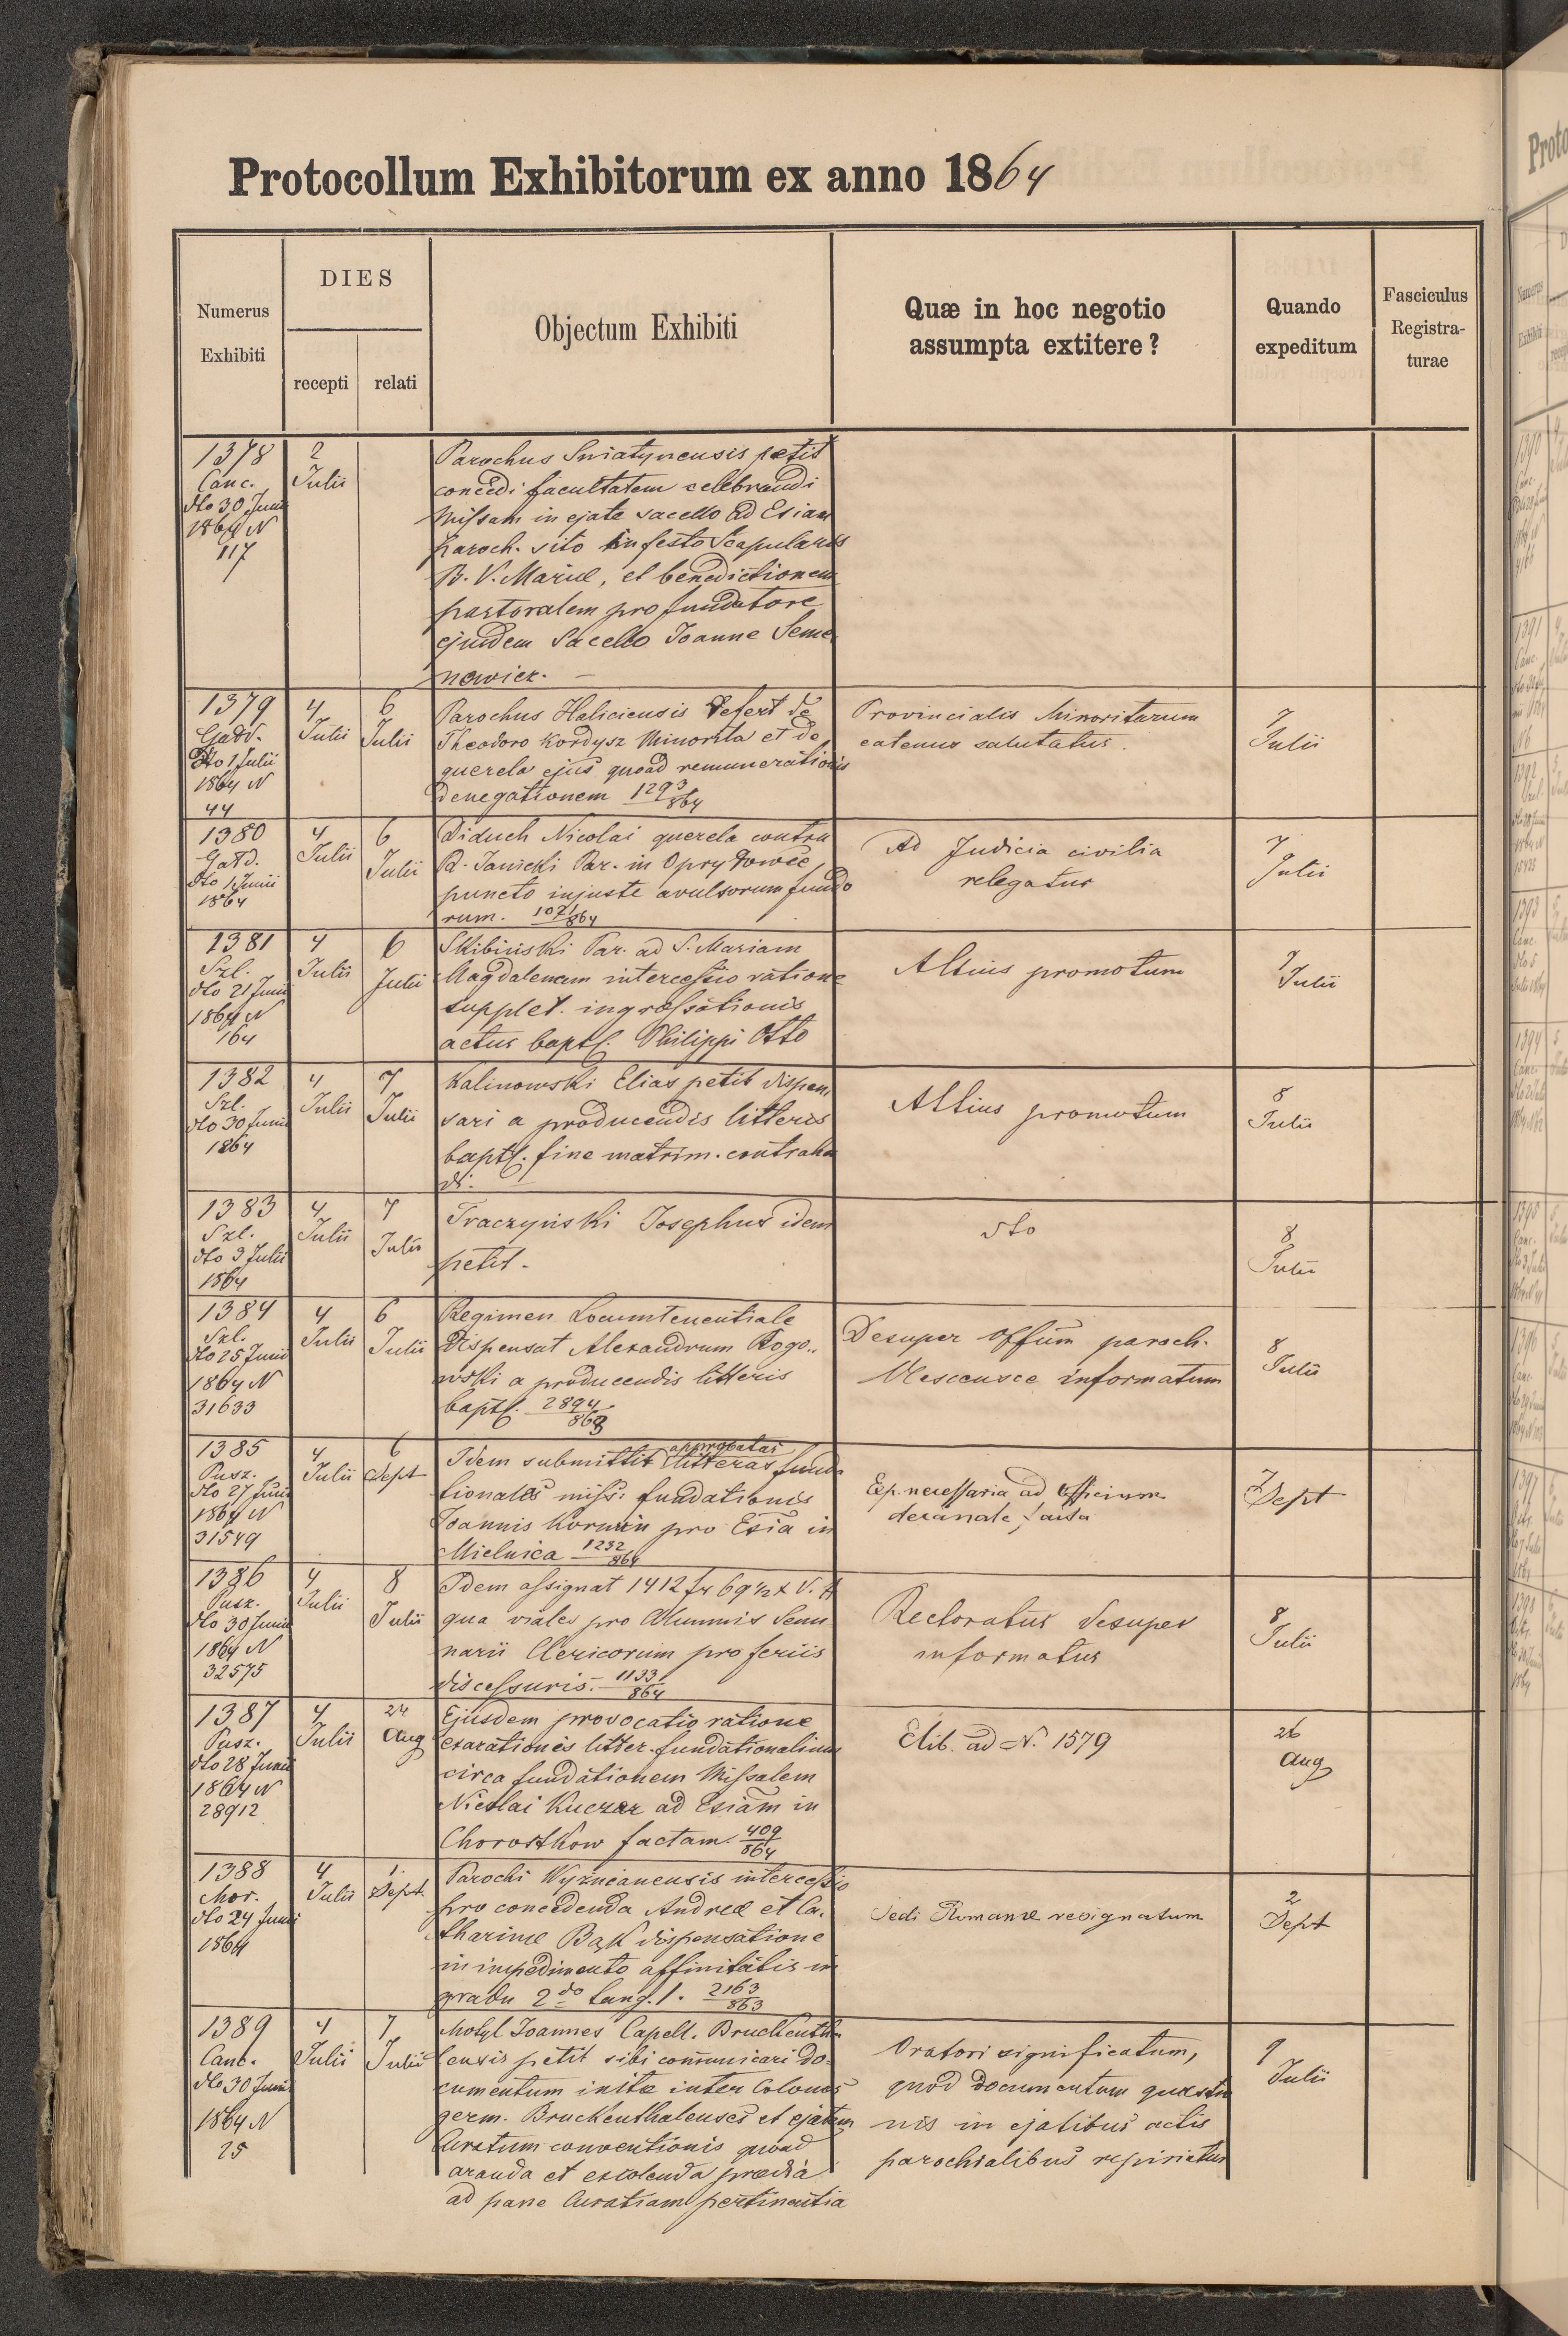 Protocollum Exhibitorum ex anno 1864
Numerus
Exhibiti
DIES
recepti
relati
Objectum Exhibiti
Quæ in hoc negotio
assumpta extitere?
Quando
expeditum
Fasciculus
Registra-
turae
1378
Canc.
dto 30 Junii
1864 N
117
2
Julii
Parochus Sniatynensis petit
concedi facultatem celebrandi
Missam in ejate sacello ad Esiam
paroch. sito in festo Scapularis
B. V. Mariæ, et benedictionem
pastoralem pro fundatore
ejusdem Sacello Joanne Seme
nowicz. —
1379
Gard.
dto 1 Julii
1864 N
44
4
Julii
6
Julii
Parochus Haliciensis defert de
Theodoro Kordysz Minorita et de
querela ejus quoad remunerationis
denegationem 1293/864
Provincialis Minoritarum
eatenus salutatus.
7
Julii
1380
Gard.
dto 1 Junii
1864
4
Julii
6
Julii
Diduch Nicolai querela contra
R. Janicki Par. in Oprydowce
puncto injuste avulsorum fundo
rum. 1071/864
Ad Judicia civilia
relegatus
7
Julii
1381
Szl.
dto 21 Junii
1864 N
164
4
Julii
6
Julii
Skibiński Par. ad S. Mariam
Magdalenam intercessio ratione
supplet. ingrossationis
actus bapts. Philippi Otto
Altius promotum
7
Julii
1382
Szl.
dto 30 Junii
1864
4
Julii
7
Julii
Kalinowski Elias petit dispen
sari a producendis litteris
bapts. fine matrim. contrahen
di.
Altius promotum
8
Julii
1383
Szl.
dto 3 Julii
1864
4
Julii
7
Julii
Traczyński Josephus idem
petit.
dto
8
Julii
1384
Szl.
dto 25 Junii
1864 N
31633
4
Julii
6
Julii
Regimen Locumtenentiale
dispensat Alexandrum Rogo..
wski a producendis litteris
bapts. 2894/863
Desuper Offum paroch.
informatum
8
Julii
1385
Pusz.
dto 27 Junii
1864 N
31549
4
Julii
6
Sept
approbatas
Idem submittit litteras funda
tionales miss: fundationis
Joannis Kormin pro Esia in
Mielnica 1232/864
Exp. necessaria ad officium
decanale facta
7
Sept
1386
Pusz.
dto 30 Junii
1864 N
32575
4
Julii
8
Julii
Idem assignat 1412 fr 69 1/2 x V. A
qua viales pro Alumnis Semi
narii Clericorum pro feriis
discessuris. — 1133/864
Rectoratus desuper
informatus
8
Julii
1387
Pusz.
dto 28 Junii
1864 N
28912
4
Julii
24
Aug
Ejusdem provocatio ratione
exarationis litter. fundationalium
circa fundationem Missalem
Nicolai Kuczer ad Esiam in
Chorostkow factam. 409/864
Elib. ad N. 1579
26
Aug
1388
Mor.
dto 24 Junii
1864
4
Julii
1.
Sept
Parochi Wyżnianensis intercessio
pro concedenda Andreæ et Ca.
tharinæ Bąk dispensatione
in impedimento affinitatis in
gradu 2do tang. 1. 2163/863
Sedi Romanæ resignatum
2
Sept
1389
Canc.
dto 30 Junii
1864 N
25
4
Julii
7
Julii
Motyl Joannes Capell. Bruckentha
lensis petit sibi communicari do-
cumentum initæ inter Colonos
germ. Bruckenthalenses et ejatem
Curatum conventionis quoad
aranda et excolenda prædia
ad pane Curatiam pertinentia
Oratori significatum,
quod documentum quæstio
nis in ejatibus actis
parochialibus reperiatur
9
Julii